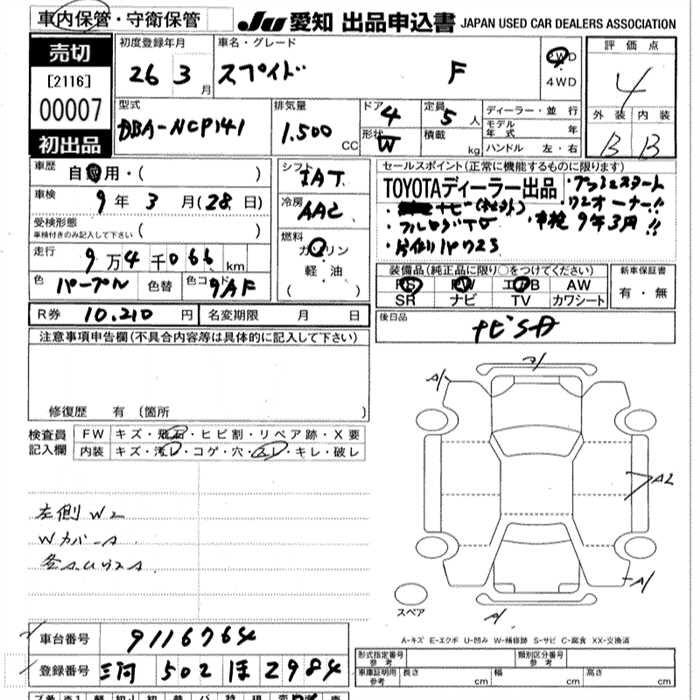 車内保管・守衛保管
JU 愛知 出品申込書 JAPAN USED CAR DEALERS ASSOCIATION
売切
[2116]
00007
初出品
初度登録年月
26 3 月
車名・グレード
スペイド F
2WD
4WD
評価点
4
外装 内装
B B
型式
DBA-NCP141
排気量
1.500 CC
ドア 4
形状 W
定員 5 人
積載 kg
ディーラー・並行
モデル年式 年
ハンドル 左・右
車歴 自家用・( )
車検 9 年 3 月(28 日)
受検形態
車検付きのみ記入して下さい ( )
走行 9 万 4 千 066 km
色 パープル 色替 色コード 9AF
シフト IAT
冷房 AAC
燃料
ガソリン
軽・油
( )
セールスポイント(正常に機能するものに限ります)
TOYOTAディーラー出品
・ワンオーナー!!
・フルセグTV ・車検9年3月!!
装備品(純正品に限り○をつけてください)
PS PW エアB AW
SR ナビ TV カワシート
新車保証書
有・無
R券 10.210 円 名変期限 月 日
後日品
ナビSD
注意事項申告欄(不具合内容等は具体的に記入して下さい)
修復歴 有(箇所 )
検査員記入欄
FW キズ・飛石・ヒビ割・リペア跡・X要
内装 キズ・汚レ・コゲ・穴・スレ・キレ・破レ
左側W2
WカバーA
A1
A1
A2
A1
A1
スペア
A-キズ E-エクボ U-凹み W-補修跡 S-サビ C-腐食 XX-交換済
車台番号 9116764
登録番号 三河 502 ほ 2984
形式指定番号 参考
類別区分番号 参考
車庫証明用 参考 長さ cm 幅 cm 高さ cm